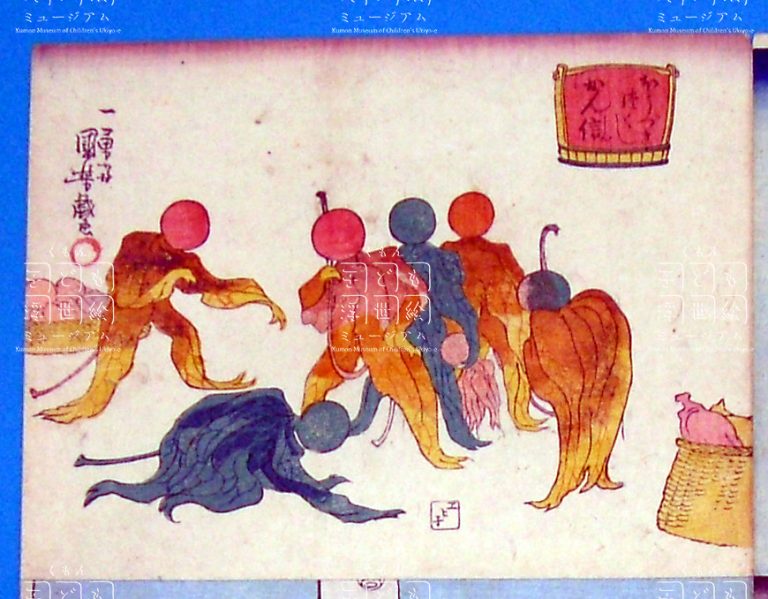 ミュージアム
Kumon Museum of Children's Ukiyo-e
ミュージアム
Kumon Museum of Children's Ukiyo-e
ミュージアム
Kumon Museum of Children's Ukiyo-e
づくし
かん信
一勇齋
國芳戯画
くもん
子ども
浮世絵
ミュージアム
Kumon Museum of Children's Ukiyo-e
くもん
子ども
浮世絵
ミュージアム
Kumon Museum of Children's Ukiyo-e
くもん
子ども
浮世絵
ミュージアム
Kumon Museum of Children's Ukiyo-e
くもん
くもん
くもん